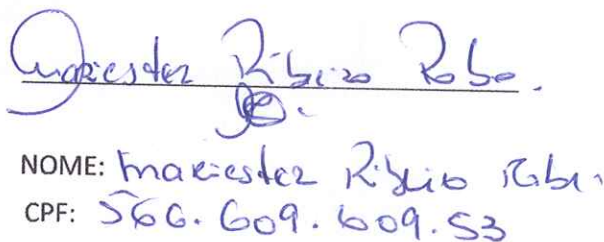 Mariester Ribeiro Robe.
NOME: Mariester Ribeiro Robe.
CPF: 566.609.609.53